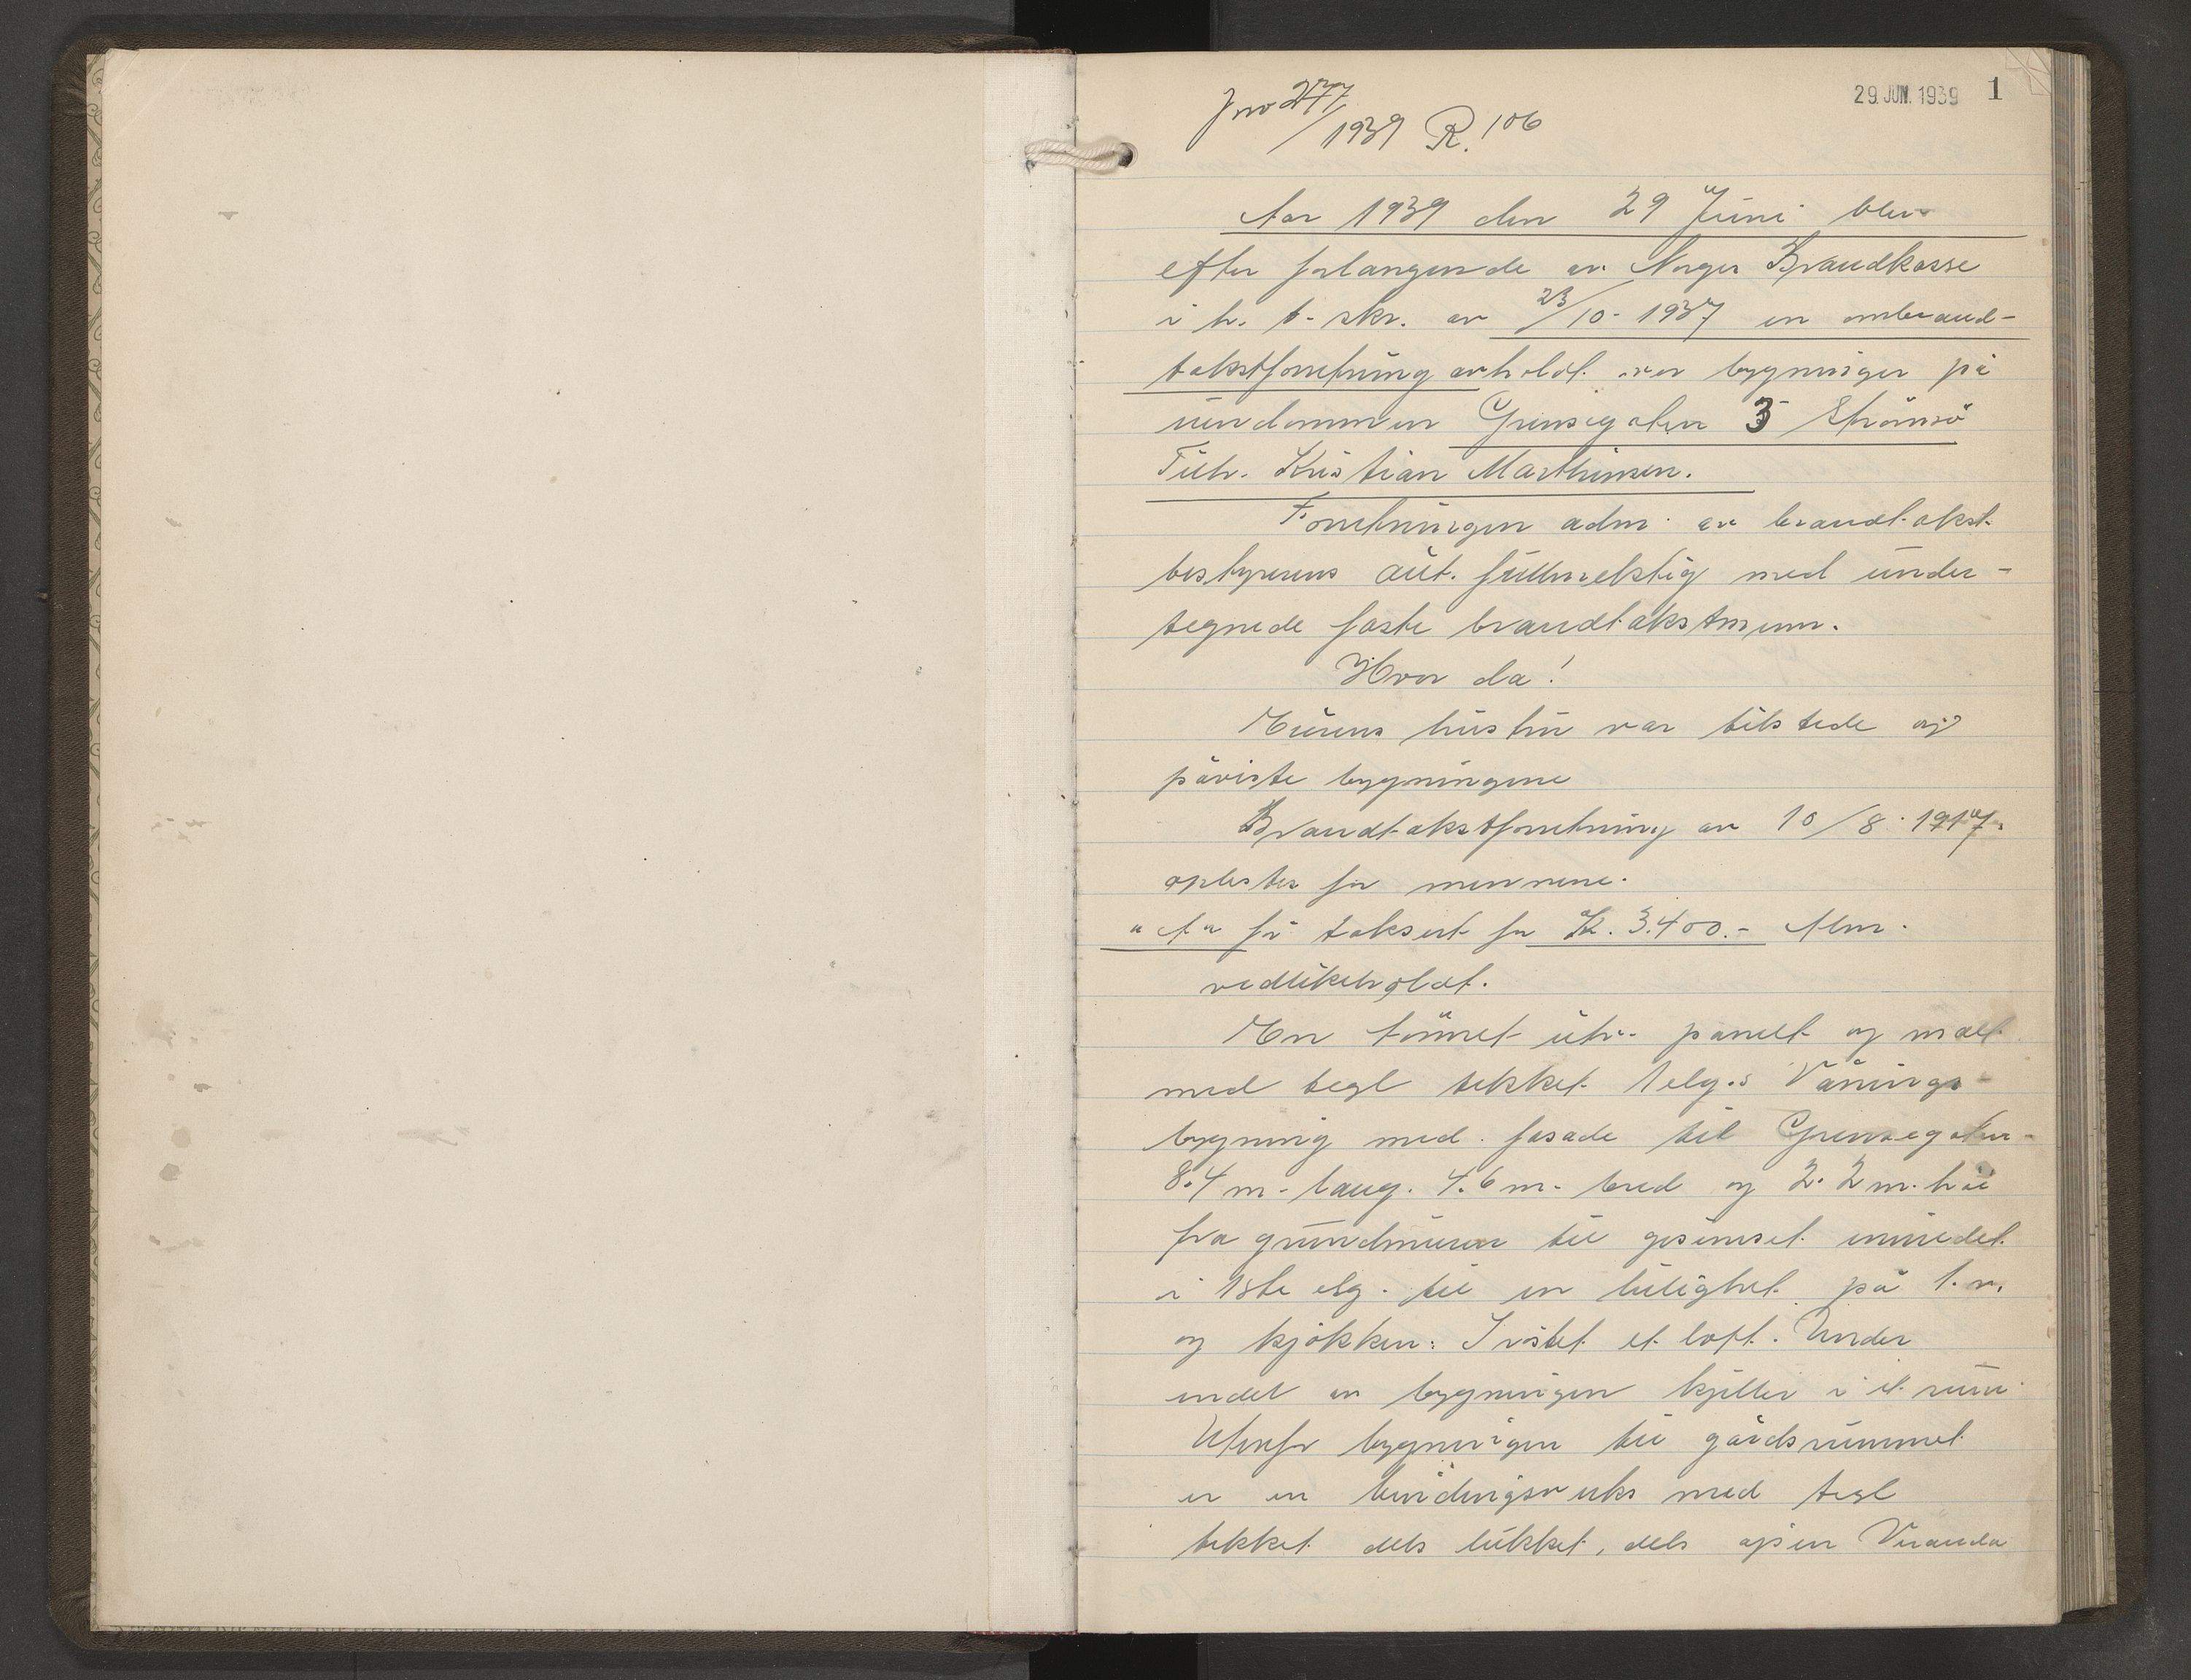 Jnr 277/1939 R. 106
29. JUN. 1939 1
Aar 1939 den 29 Juni blev
efter forlangende av Norges Brandkasse
i h. t. skr. av 23/10-1937 en ombrand-
takstforretning avholdt over bygninger på
eiendommen Grensegaten 3 Strømsø
Tilh. Kristian Marthinsen.
Forretningen adm. av brandtakst-
bestyrerens aut. fullmektig med under-
tegnede faste brandtakstmenn.
Hvor da!
Eierens hustru var tilstede og
påviste bygningene
Brandtakstforretning av 10/8 1917.
oplestes for mennene.
"A" før taksert for Kr. 3.400.- Alm.
vedlikeholdt.
En tømret utv. panelt og malt
med tegl tekket 1 etg.s Vånings-
bygning med fasade til Grensegaten-
8.4 m. lang. 4.6 m. bred og 2.2 m. høi
fra grundmuren til gesimset innredet
i 1ste etg. til en leilighet på 1. v.
og kjøkken: I røstet et loft. Under
endel av bygningen kjeller i et rum
Utenfor bygningen til gårdsrummet
er en bindingsverks med tegl
tekket dels lukket, dels åpen Veranda